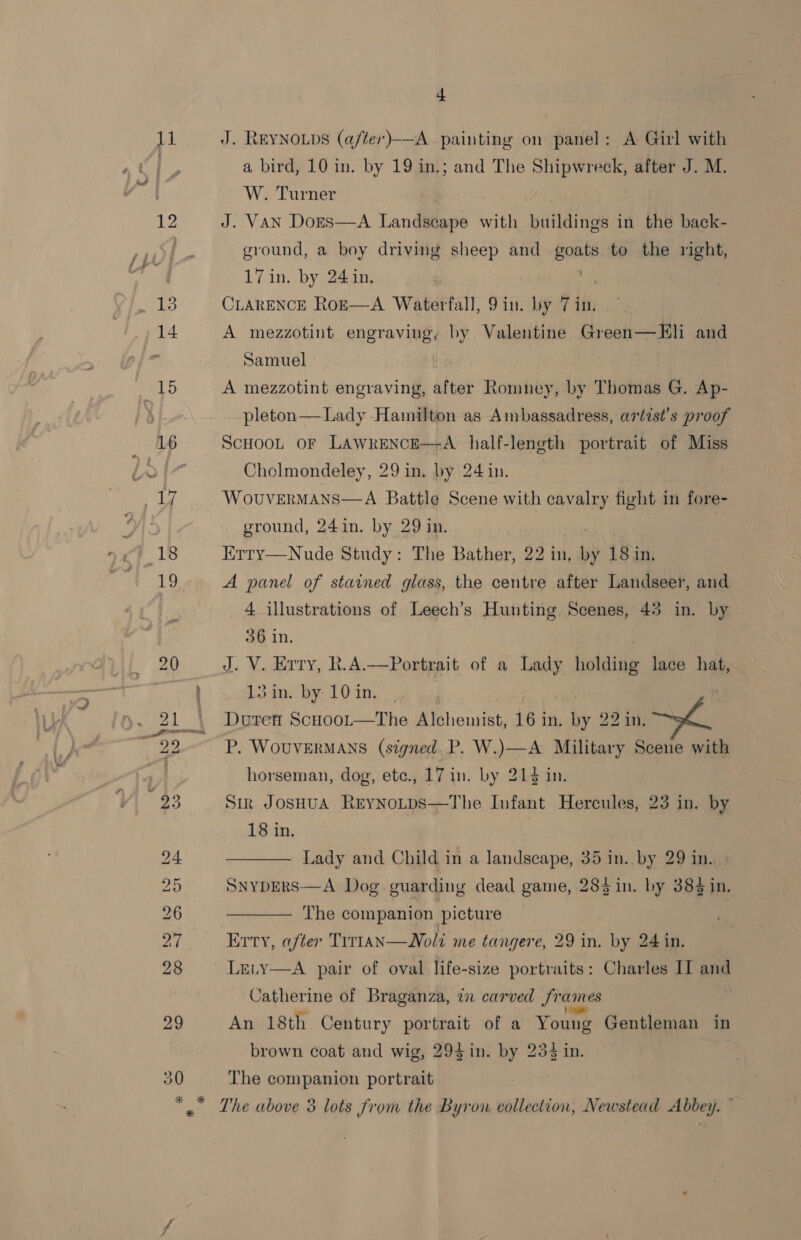 4
11 J. REYNOLDS (after)—A painting on panel: A Girl with
a bird, 10 in. by 19 in.; and The Shipwreck, after J. M.
W. Turner
12 J. VAN DOES—A Landscape with buildings in the back-
ground, a boy driving sheep and goats to the right,
17 in. by 24 in.
13 CLARENCE ROE—A Waterfall, 9 in. by 7 in.
14 A mezzotint engraving, by Valentine Green—Eli and
Samuel
15 A mezzotint engraving, after Romney, by Thomas G. Ap-
pleton—Lady Hamilton as Ambassadress, artist's proof
16 SCHOOL OF LAWRENCE—A half-length portrait of Miss
Cholmondeley, 29 in. by 24 in.
17 WOUVERMANS—A Battle Scene with cavalry fight in fore-
ground, 24 in. by 29 in.
18 ETTY—Nude Study: The Bather, 22 in. by 18 in.
19 A panel of stained glass, the centre after Landseer, and
4 illustrations of Leech's Hunting Scenes, 43 in. by
36 in.
20 J. V. ETTY, R.A.—Portrait of a Lady holding lace hat,
13 in. by 10 in.
21 DUTCH SCHOOL—The Alchemist, 16 in. by 22 in.
22 P. WOUVERMANS (signed P. W.)—A Military Scene with
horseman, dog, etc., 17 in. by 21½ in.
23 SIR JOSHUA REYNOLDS—The Infant Hercules, 23 in. by
18 in.
24 ——— Lady and Child in a landscape, 35 in. by 29 in.
25 SNYDERS—A Dog guarding dead game, 28½ in. by 38½ in.
26 ——— The companion picture
27 ETTY, after TITIAN—Noli me tangere, 29 in. by 24 in.
28 LELY—A pair of oval life-size portraits: Charles II and
Catherine of Braganza, in carved frames
29 An 18th Century portrait of a Young Gentleman in
brown coat and wig, 29½ in. by 23½ in.
30 The companion portrait
*** The above 3 lots from the Byron collection, Newstead Abbey.